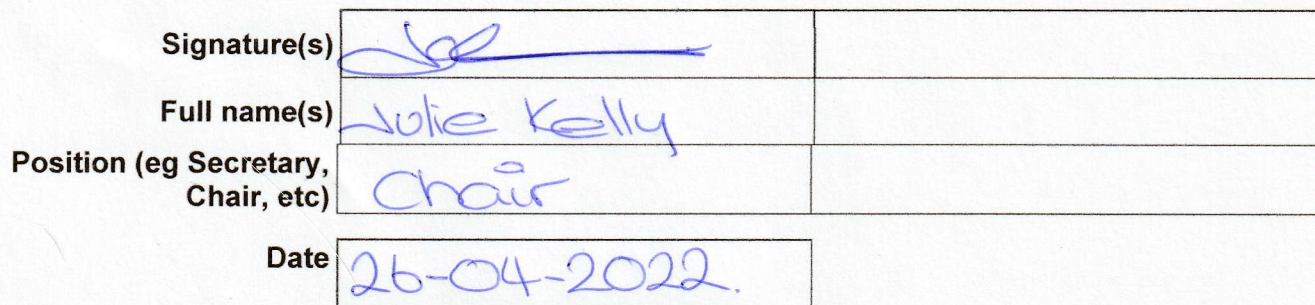 Signature(s)
Full name(s) Julie Kelly
Position (eg Secretary,
Chair, etc) Chair
Date 26-04-2022.